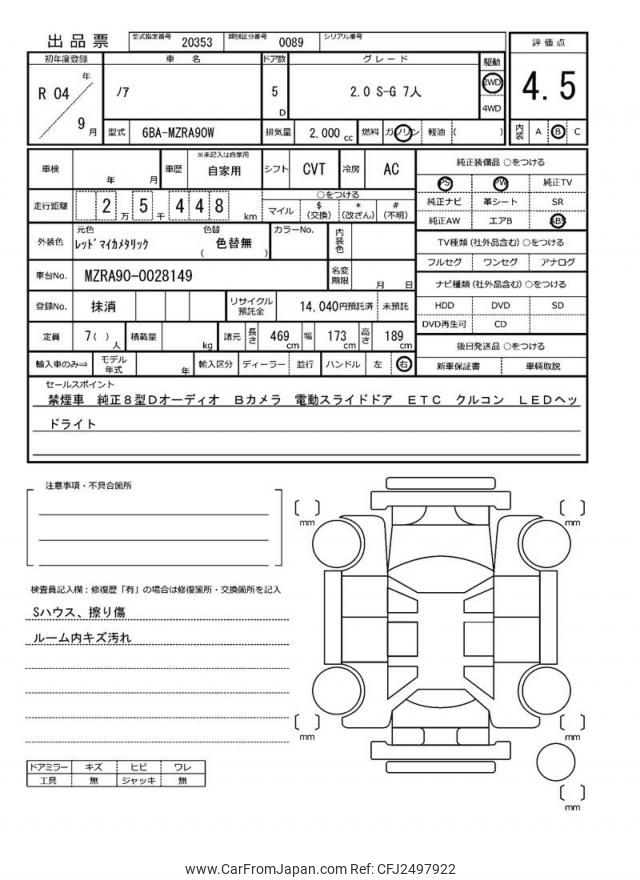 出品票 型式指定番号 20353 類別区分番号 0089 シリアル番号
初年度登録 車 名 ドア数 グレード 駆動 評価点
R 04 年 9 月 ﾉｱ 5 D 2.0 S-G 7人 2WD 4WD 4.5
型式 6BA-MZRA90W 排気量 2,000 cc 燃料 ガソリン 軽油 ( ) 内装 A B C
車検 年 月 車歴 ※未記入は自家用 自家用 シフト CVT 冷房 AC
走行距離 2 万 5 千 4 4 8 km ○をつける マイル $ (交換) * (改ざん) # (不明)
外装色 元色 ﾚｯﾄﾞﾏｲｶﾒﾀﾘｯｸ 色替 ( 色替無 ) カラーNo. 内装色
車台No. MZRA90-0028149 名変期限 月 日
登録No. 抹消 リサイクル預託金 14,040円預託済 未預託
定員 7( ) 人 積載量 kg 諸元 長さ 469 cm 幅 173 cm 高さ 189 cm
輸入車のみ⇒ モデル年式 年 輸入区分 ディーラー 並行 ハンドル 左 右
純正装備品 ○をつける
PS PW 純正TV
純正ナビ 革シート SR
純正AW エアB ABS
TV種類 (社外品含む) ○をつける
フルセグ ワンセグ アナログ
ナビ種類 (社外品含む) ○をつける
HDD DVD SD
DVD再生可 CD
後日発送品 ○をつける
新車保証書 車輌取説
セールスポイント
禁煙車 純正８型Ｄオーディオ Ｂカメラ 電動スライドドア ＥＴＣ クルコン ＬＥＤヘッ
ドライト
注意事項・不具合箇所
検査員記入欄：修復歴「有」の場合は修復箇所・交換箇所を記入
Sハウス、擦り傷
ルーム内キズ汚れ
ドアミラー キズ ヒビ ワレ
工具 無 ジャッキ 無
mm
mm
mm
mm
mm
www.CarFromJapan.com Ref: CFJ2497922